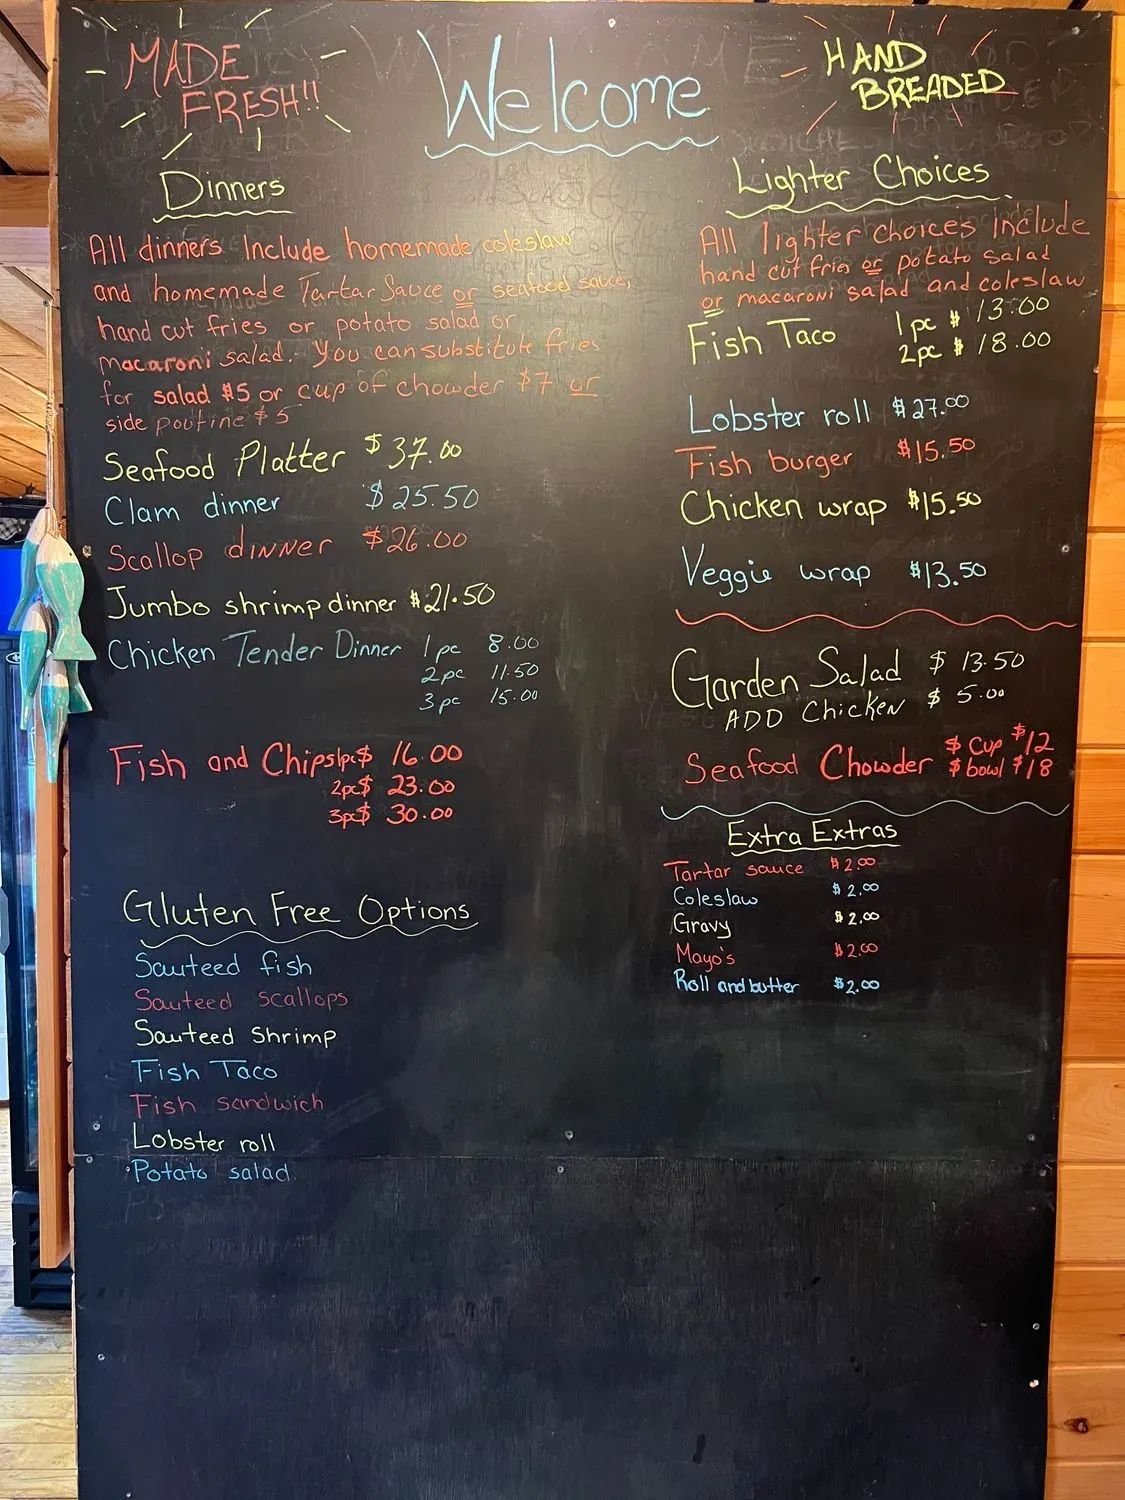 MADE
FRESH!!
Welcome
HAND
BREADED
Dinners
All dinners Include homemade coleslaw
and homemade Tartar Sauce or seafood sauce,
hand cut fries or potato salad or
macaroni salad. You can substitute fries
for salad $5 or cup of chowder $7 or
side poutine $5
Seafood Platter $37.00
Clam dinner $25.50
Scallop dinner $26.00
Jumbo shrimp dinner $21.50
Chicken Tender Dinner 1pc 8.00
2pc 11.50
3pc 15.00
Fish and Chips 1pc$ 16.00
2pc$ 23.00
3pc$ 30.00
Gluten Free Options
Sauteed fish
Sauteed scallops
Sauteed Shrimp
Fish Taco
Fish sandwich
Lobster roll
Potato salad
Lighter Choices
All lighter choices include
hand cut fries or potato salad
or macaroni salad and coleslaw
Fish Taco 1pc $13.00
2pc $18.00
Lobster roll $27.00
Fish burger $15.50
Chicken wrap $15.50
Veggie wrap $13.50
Garden Salad $13.50
ADD Chicken $5.00
Seafood Chowder $ Cup $12
$ bowl $18
Extra Extras
Tartar sauce $2.00
Coleslaw $2.00
Gravy $2.00
Mayo's $2.00
Roll and butter $2.00